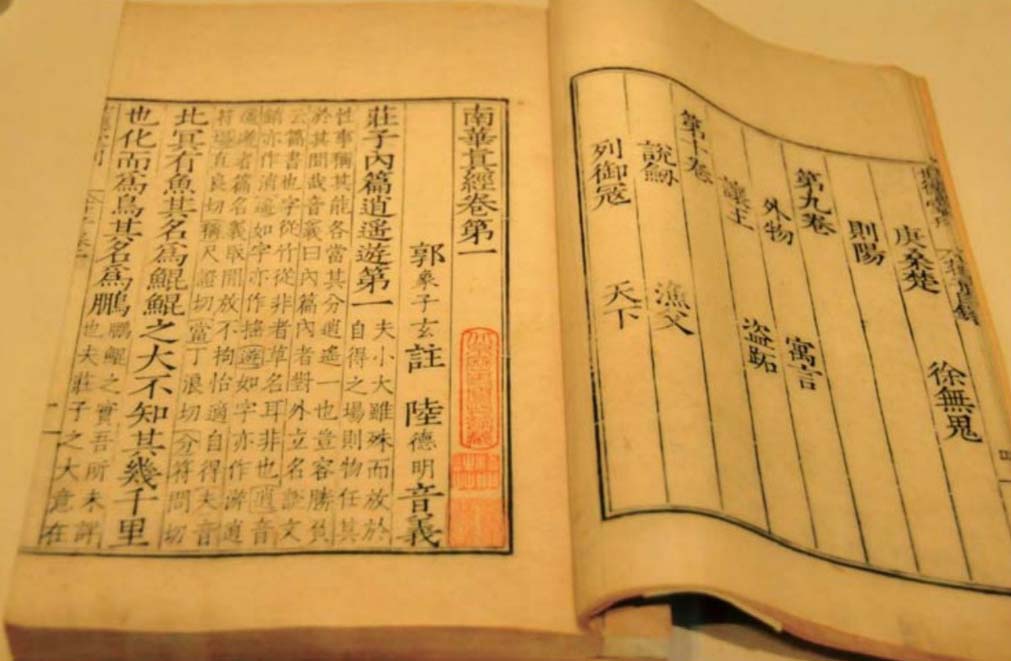 庚桑楚 徐無鬼
則陽
第九卷
外物 寓言
讓王 盜跖
第十卷
說劒 漁父
列御寇 天下
南華真經卷第一
郭象子玄註 陸德明音義
莊子內篇逍遥遊第一
夫小大雖殊而放於
自得之場則物任其
性事稱其能各當其分逍遥一也豈容勝負
於其間哉音義曰內篇內者對外立名說文
云篇書也字從竹從非者草名耳非也逍音
銷亦作消遥如字亦作揺遊如字亦作游逍
遥遊者篇名義取閒放不拘怡適自得夫音
符場直良切稱尺證切當丁浪切分符問切
北冥有魚其名爲鯤鯤之大不知其幾千里
也化而爲鳥其名爲鵬
鵬鯤之實吾所未詳
也夫莊子之大意在